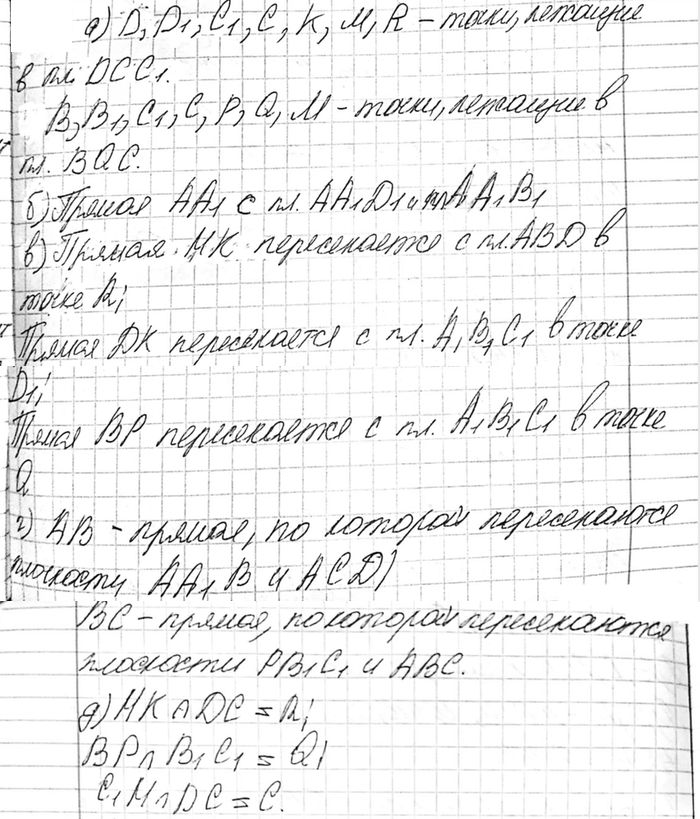 а) D, D1, C1, C, K, M, R – точки, лежащие
в пл. DCC1.
B, B1, C1, C, P, Q, M – точки, лежащие в
пл. BQC.
б) Прямая AA1 с пл. AA1D1 и пл AA1B1
в) Прямая МК пересекается с пл. ABD в
точке R;
Прямая DK пересекается с пл. A1B1C1 в точке
D1;
Прямая BP пересекается с пл. A1B1C1 в точке
Q
г) AB – прямая, по которой пересекаются
плоскости AA1B и ACD;
BC – прямая, по которой пересекаются
плоскости PB1C1 и ABC.
д) MK ∩ DC = R;
BP ∩ B1C1 = Q;
C1M ∩ DC = C.